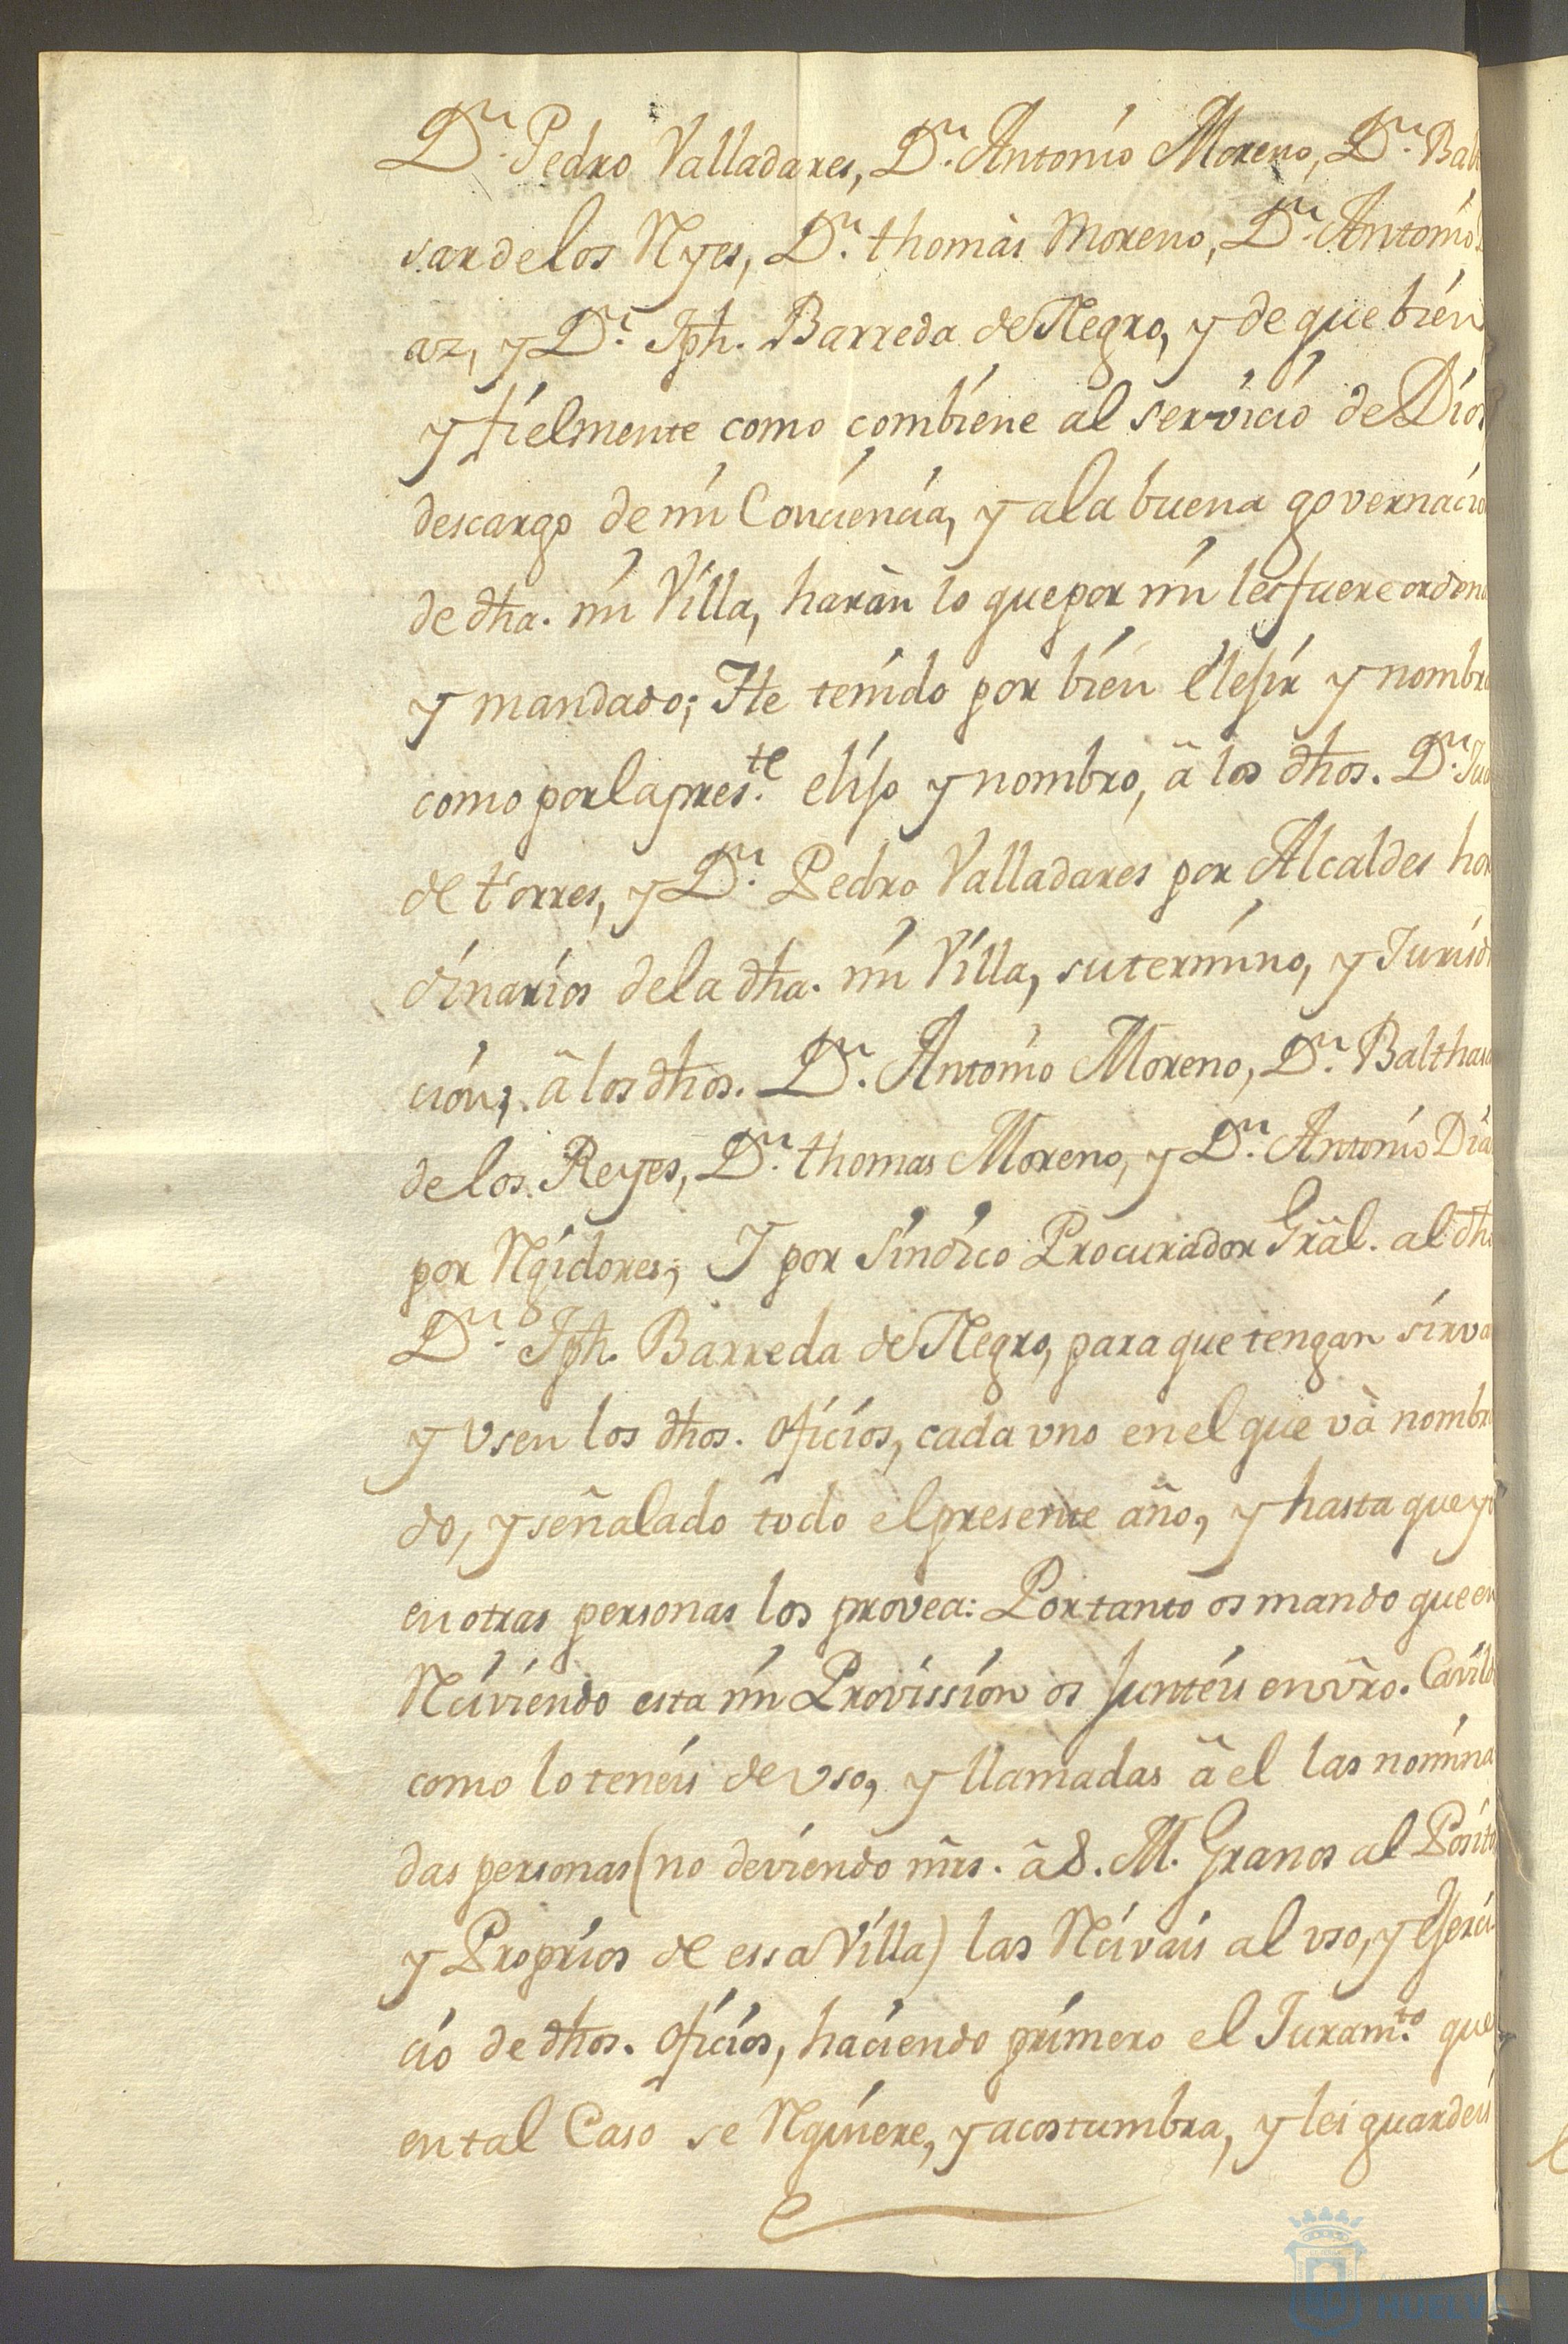 Dn. Pedro Valladares, Dn. Antonio Moreno, Dn. Balt
sar de los Ryes, Dn. thomàs Moreno, Dn. Antonio
az, y Dn. Jph. Barreda de Negro, y de que bien
y fielmente como combiene al servicio de Dios
descargo de mi Conciencia, y a la buena governacio
de dha. mi Villa, haràn lo que por mi les fuere ordena
y mandado; He tenido por bien elejir y nombra
como por la preste. elijo y nombro, â los dhos. Dn. Jua
de torres, y Dn. Pedro Valladares por Alcaldes hor
dinarios de la dha. mi Villa, su termino, y Jurisdi
cion; â los dhos. Dn. Antonio Moreno, Dn. Balthasa
de los Reyes, Dn. thomas Moreno, y Dn. Antonio Dia
por Rgidores; Y por Sindico Procurador Grâl. al dho
Dn. Jph. Barreda de Negro, para que tengan sirva
y Vsen los dhos. oficios, cada vno en el que và nombra
do, y señalado todo el presente año, y hasta que yo
en otras personas los provea: Por tanto os mando que en
Rciviendo esta mi Provission os junteis en vro. Cavild
como lo teneis de vso, y llamadas â el las nomina
das personas (no deviendo mrs. â S. M. Granos al Posito
y Proprios de essa Villa) las Rcivais al vso, y Ejerci
cio de dhos. oficios, haciendo primero el Juramto. que
en tal Caso se Rquiere, y acostumbra, y les guardeis
HUELVA